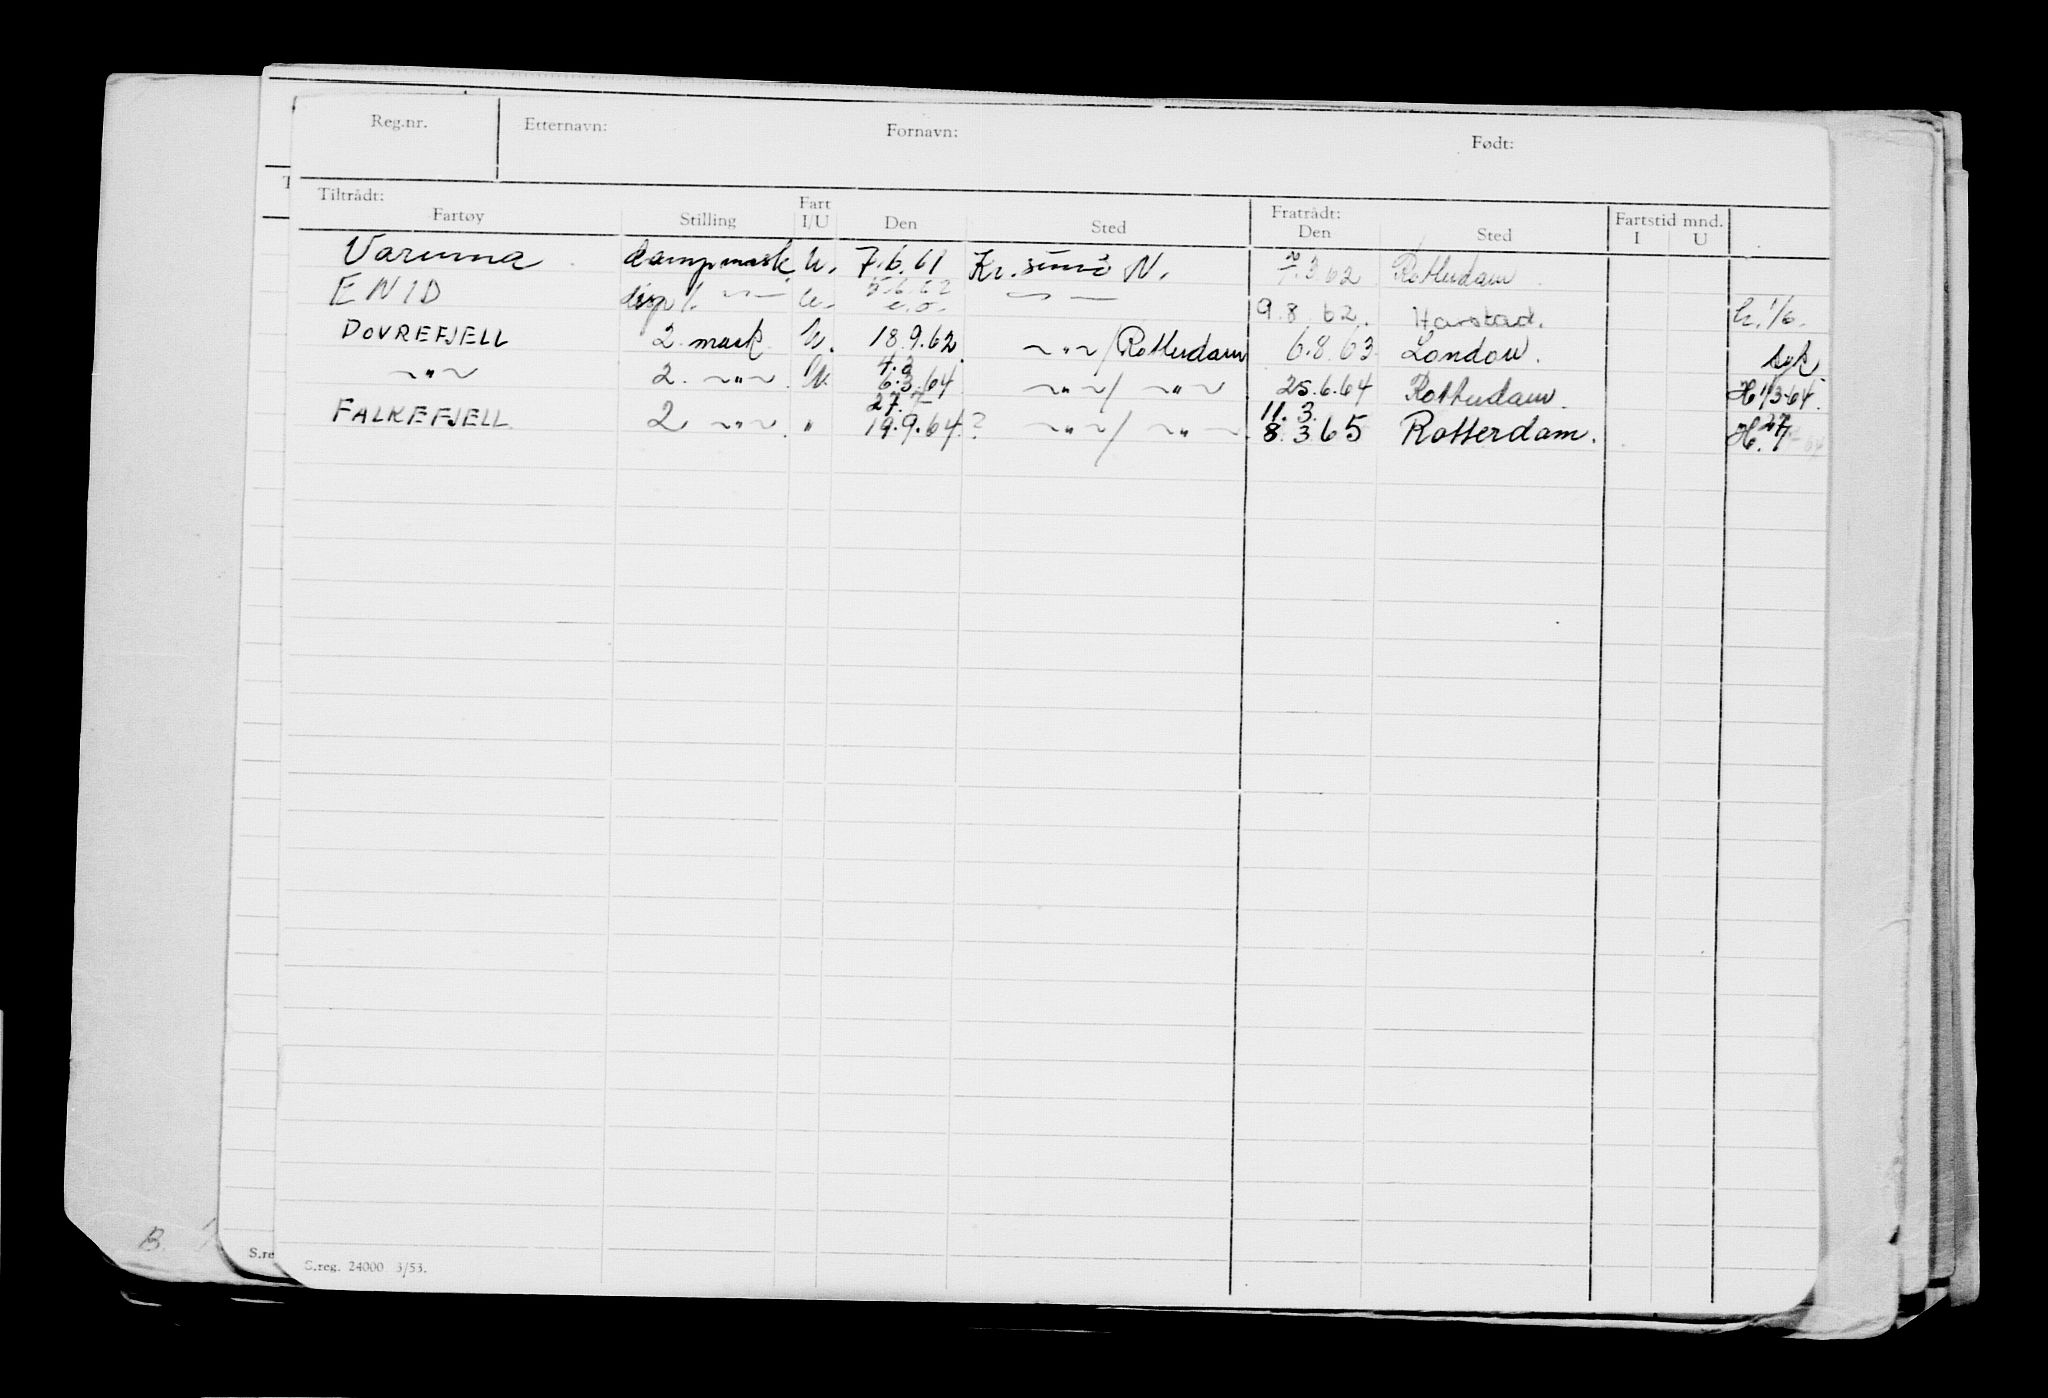 Reg.nr. Etternavn: Fornavn: Født:
Tiltrådt: Fratrådt: Fartstid mnd.
Fartøy Stilling Fart I/U Den Sted Den Sted I U
Varuna dampmask U. 7.6.61 Kr.sund N. 3.62 Rotterdam
ENID disp 9.8.62. Harstad.
DOVREFJELL 2. mask. U. 18.9.62. ~"~/Rotterdam 6.8.63 London. syk
~"~ 2. ~"~ U. 4.3 6.3.64 ~"~/ ~"~ 25.6.64 Rotterdam. H 1/3-64.
FALKEFJELL 2 ~"~ " 27.7 19.9.64? ~"~/ ~"~ 11.3. 8.3.65 Rotterdam. H. 27/7-64
B.
S.re
S.reg. 24000 3/53.